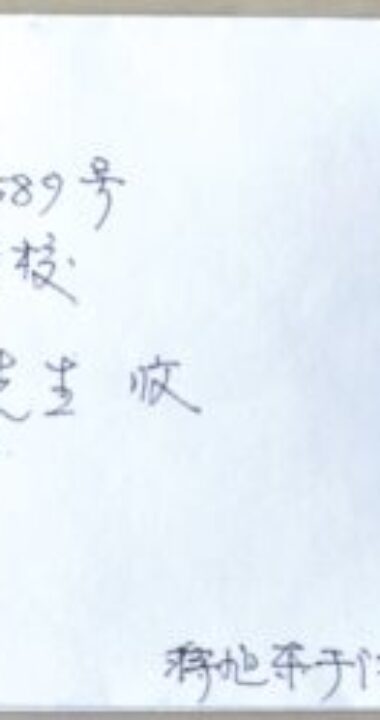 589号
校
先生 收
蒋旭东于